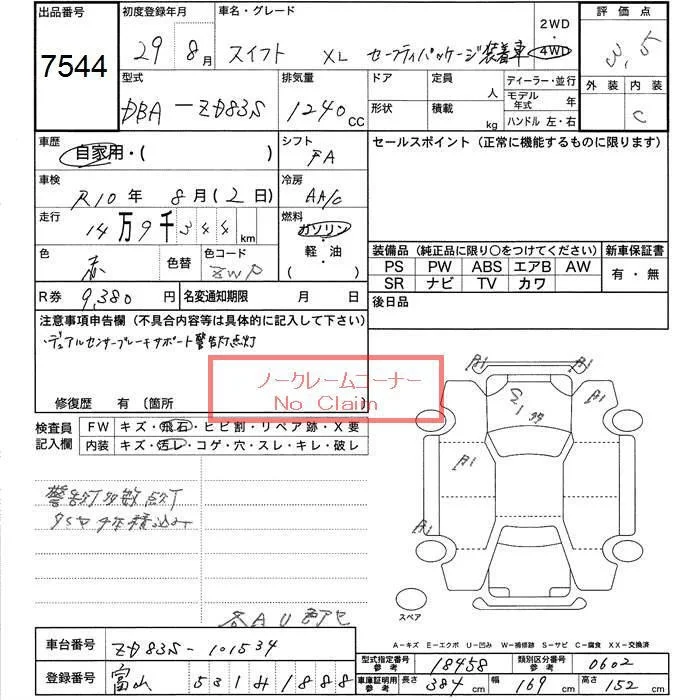 出品番号 初度登録年月 車名・グレード 2WD・4WD 評価点
7544 29年8月 スイフト XL セーフティパッケージ装着車 3.5
型式 排気量 ドア 定員 人 ディーラー・並行 外装 内装
DBA-ZD83S 1240cc 形状 積載 kg モデル年式 年 ハンドル 左・右 C
車歴 自家用・( ) シフト FA セールスポイント(正常に機能するものに限ります)
車検 R10年8月(2日) 冷房 AA/C
走行 14万9千344km 燃料 ガソリン・軽油( )
色 赤 色替 色コード ZWP
装備品(純正品に限り○をつけてください) 新車保証書
PS PW ABS エアB AW 有・無
SR ナビ TV カワ
R券 9,380円 名変通知期限 月 日 後日品
注意事項申告欄(不具合内容等は具体的に記入して下さい)
・デュアルセンサーブレーキサポート警告灯点灯
ノークレームコーナー
No Claim
修復歴 有〔箇所
検査員記入欄 FW キズ・飛石・ヒビ割・リペア跡・X要
内装 キズ・汚レ・コゲ・穴・スレ・キレ・破レ
警告灯多数点灯
スペア
A-キズ E-エクボ U-凹み W-補修跡 S-サビ C-腐食 XX-交換済
車台番号 ZD83S-101534
登録番号 富山 531 H 1888
型式指定番号 参考 18458 類別区分番号 参考 0602
車庫証明用 参考 長さ 384cm 幅 169cm 高さ 152cm